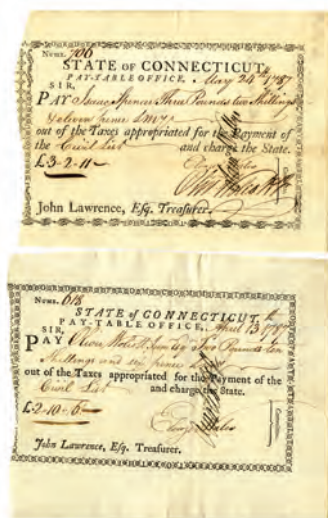 Numb. 706
STATE OF CONNECTICUT,
PAY-TABLE OFFICE, May 24th 1787
SIR,
PAY Isaac Spencer Three Pounds two Shillings
& eleven pence
out of the Taxes appropriated for the Payment of
Civil List and charge the State.
£3-2-11
John Lawrence, Esq. Treasurer.
Numb. 618
STATE OF CONNECTICUT,
PAY-TABLE OFFICE, April 13th
SIR,
PAY Oliver Wolcott Two Pounds ten
Shillings and six pence
out of the Taxes appropriated for the Payment of the
Civil List and charge the State.
£2-10-6
John Lawrence, Esq. Treasurer.